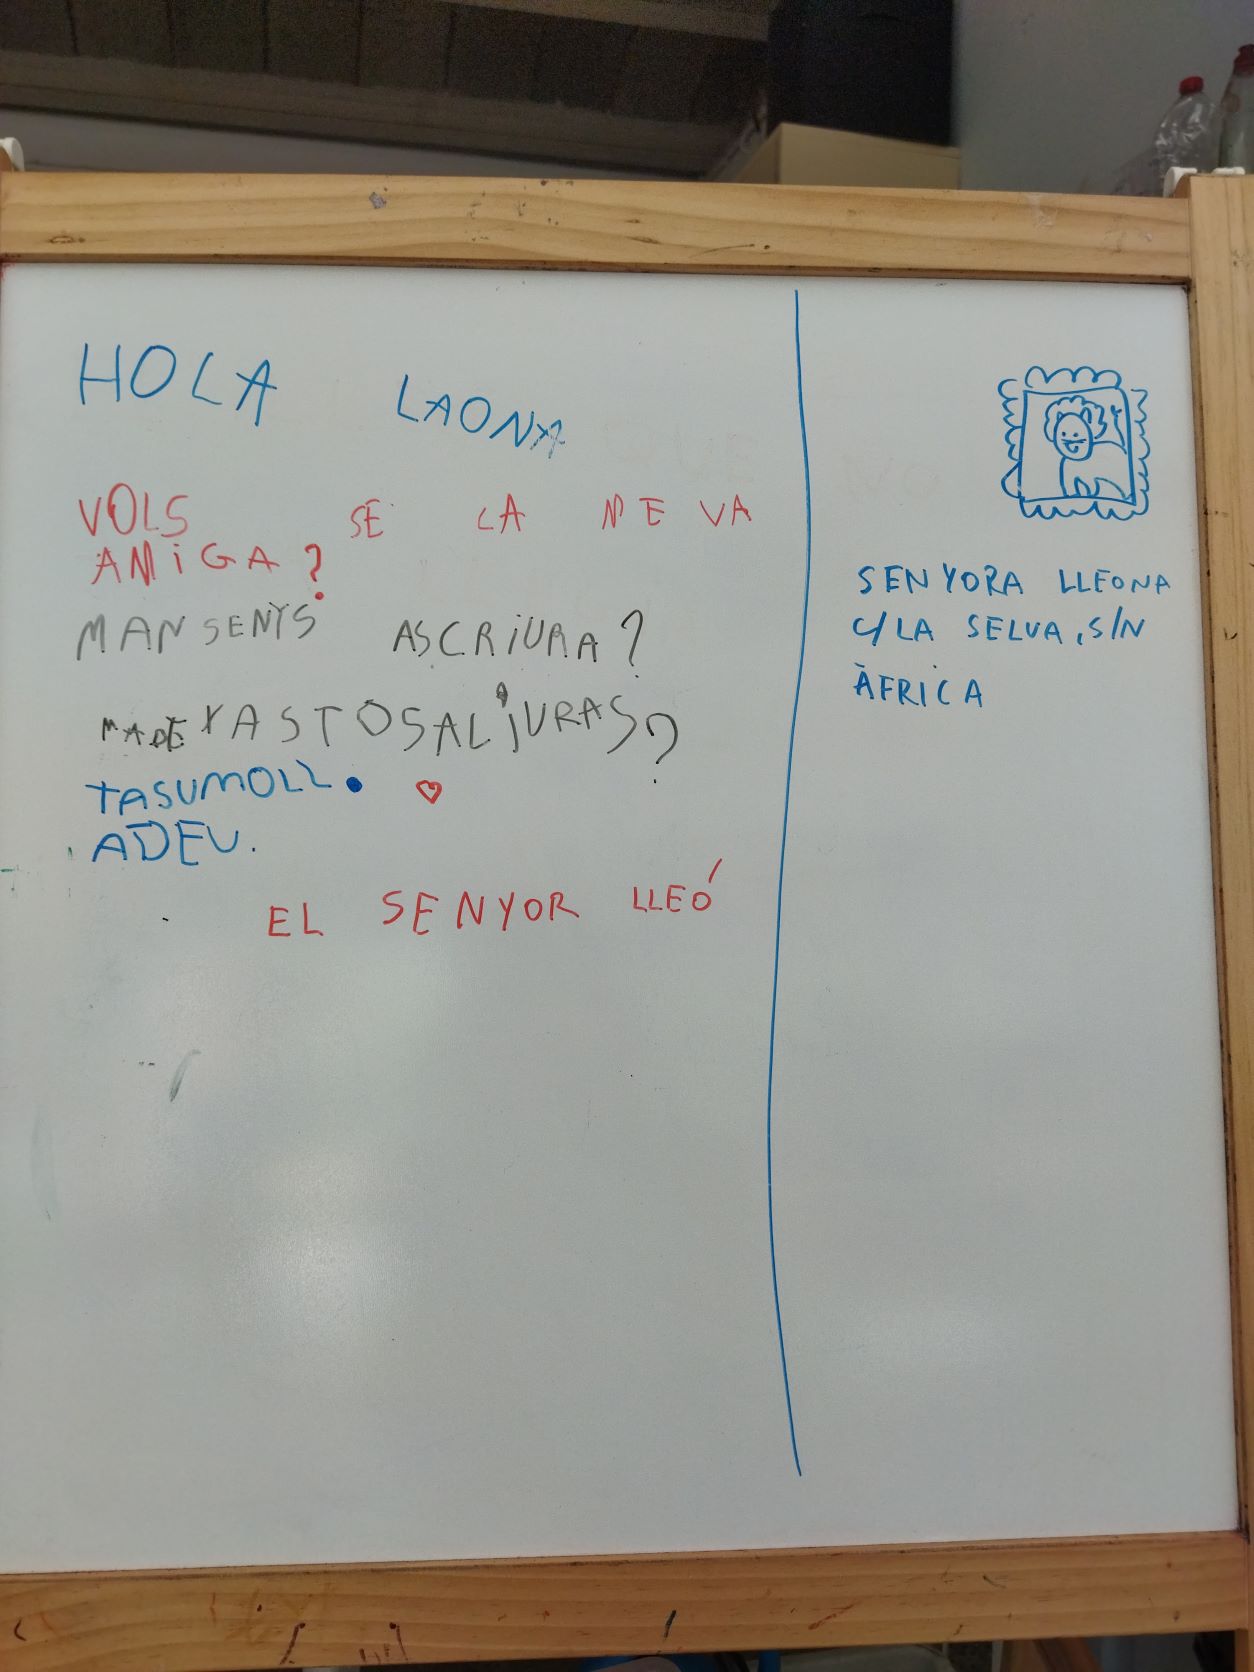 HOLA LAONA
VOLS SE LA MEVA
AMiGA?
MANSENYS ASCRiURA?
MADEXASTOSALiURAS?
TASUMOLL.
ADEU.
EL SENYOR LLEÓ
SENYORA LLEONA
C/LA SELVA, S/N
ÀFRICA